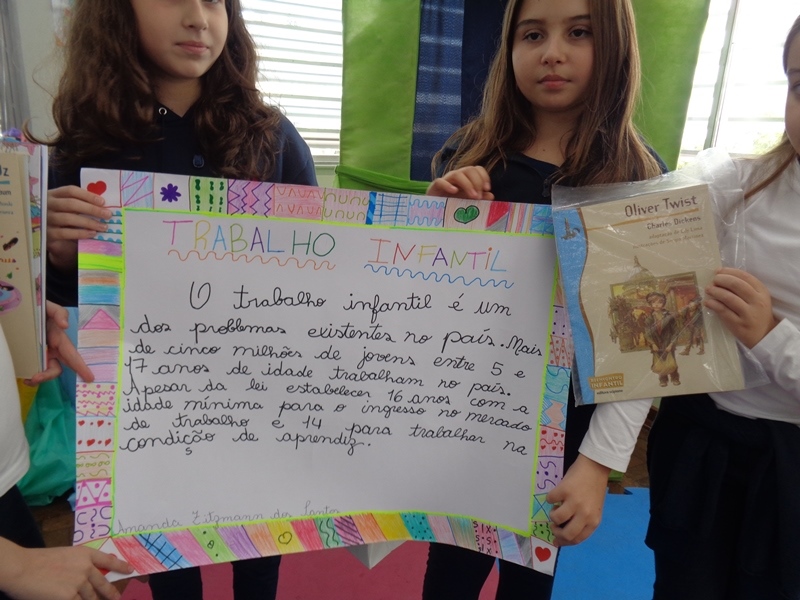 TRABALHO INFANTIL
O trabalho infantil é um
dos problemas existentes no país. Mais
de cinco milhões de jovens entre 5 e
17 anos de idade trabalham no país.
Apesar da lei estabelecer 16 anos com a
idade mínima para o ingresso no mercado
de trabalho e 14 para trabalhar na
condição de aprendiz.
Amanda Zitzmann dos Santos
Oliver Twist
Charles Dickens
INFANTIL